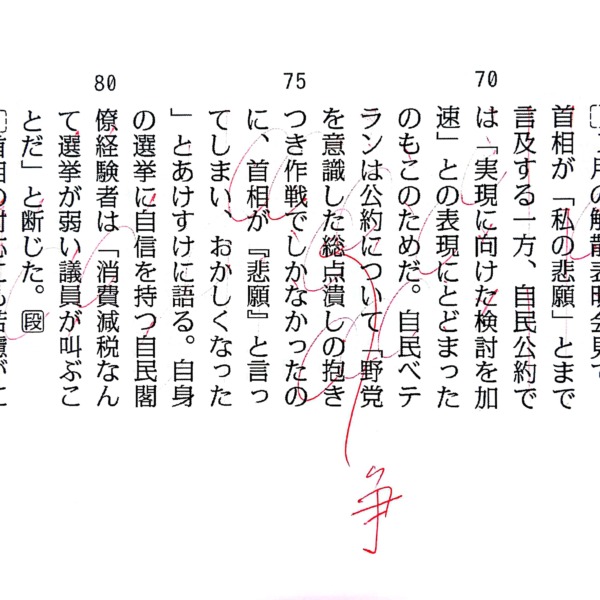 70
75
80
月の解散表明会見で
首相が「私の悲願」とまで
言及する一方、自民公約で
は「実現に向けた検討を加
速」との表現にとどまった
のもこのためだ。自民ベテ
ランは公約について「野党
を意識した総点潰しの抱き
つき作戦でしかなかったの
に、首相が『悲願』と言っ
てしまい、おかしくなった
」とあけすけに語る。自身
の選挙に自信を持つ自民閣
僚経験者は「消費減税なん
て選挙が弱い議員が叫ぶこ
とだ」と断じた。段
首相の対応にも苦慮がに
争